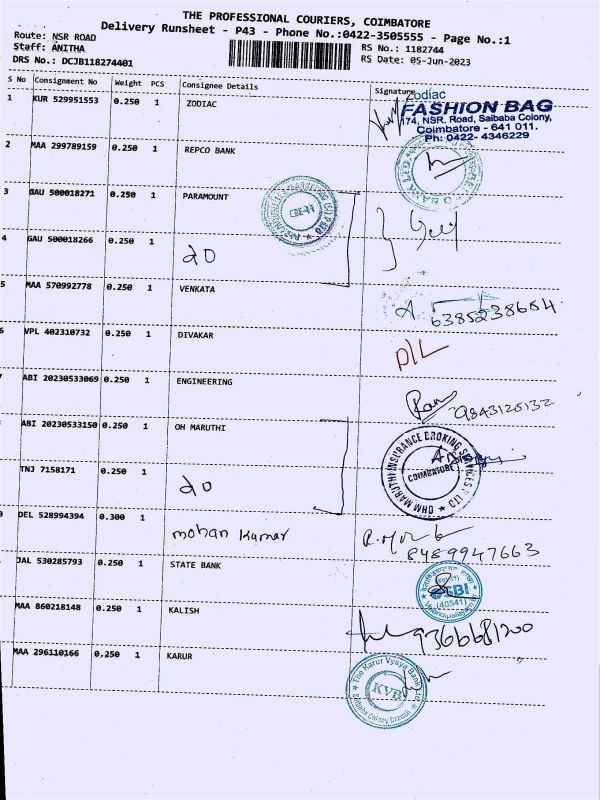 THE PROFESSIONAL COURIERS, COIMBATORE
Delivery Runsheet - P43 - Phone No.:0422-3505555 - Page No.:1
Route: NSR ROAD
Staff: ANITHA
DRS No.: DCJB118274401
RS No.: 1182744
RS Date: 05-Jun-2023
S No Consignment No Weight PCS Consignee Details Signature
1 KUR 529951553 0.250 1 ZODIAC
Zodiac
FASHION BAG
74, NSR. Road, Saibaba Colony,
Coimbatore - 641 011.
Ph: 0422- 4346229
2 MAA 299789159 0.250 1 REPCO BANK
3 GAU 500018271 0.250 1 PARAMOUNT
4 GAU 500018266 0.250 1 do
5 MAA 570992778 0.250 1 VENKATA
6385238684
6 VPL 402310732 0.250 1 DIVAKAR
D/L
ABI 20230533069 0.250 1 ENGINEERING
Ram
9843125132
ABI 20230533150 0.250 1 OH MARUTHI
OHM MARUTHI INSURANCE BROKING SERVICES P LTD
COIMBATORE
TNJ 7158171 0.250 1 do
DEL 528994394 0.300 1 mohan kumar
8489947663
JAL 530285793 0.250 1 STATE BANK
SBI
(40541)
MAA 860218148 0.250 1 KALISH
9366681200
MAA 296110166 0.250 1 KARUR
The Karur Vysya Bank Ltd
KVB
Saibaba Colony Branch